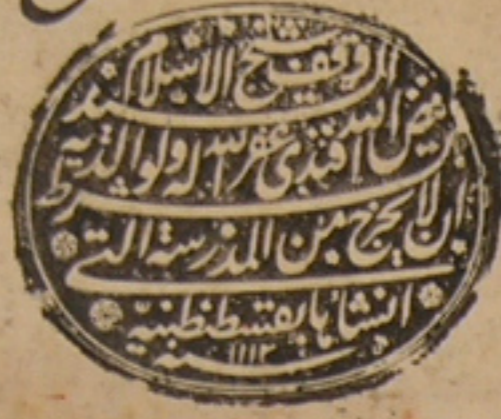 وقف شيخ الاسلام السيد
فيض الله افندى غفر الله له ولوالديه بشرط
ان لا يخرج من المدرسة التى
انشأها بقسطنطنيه
سنه ١١١٣